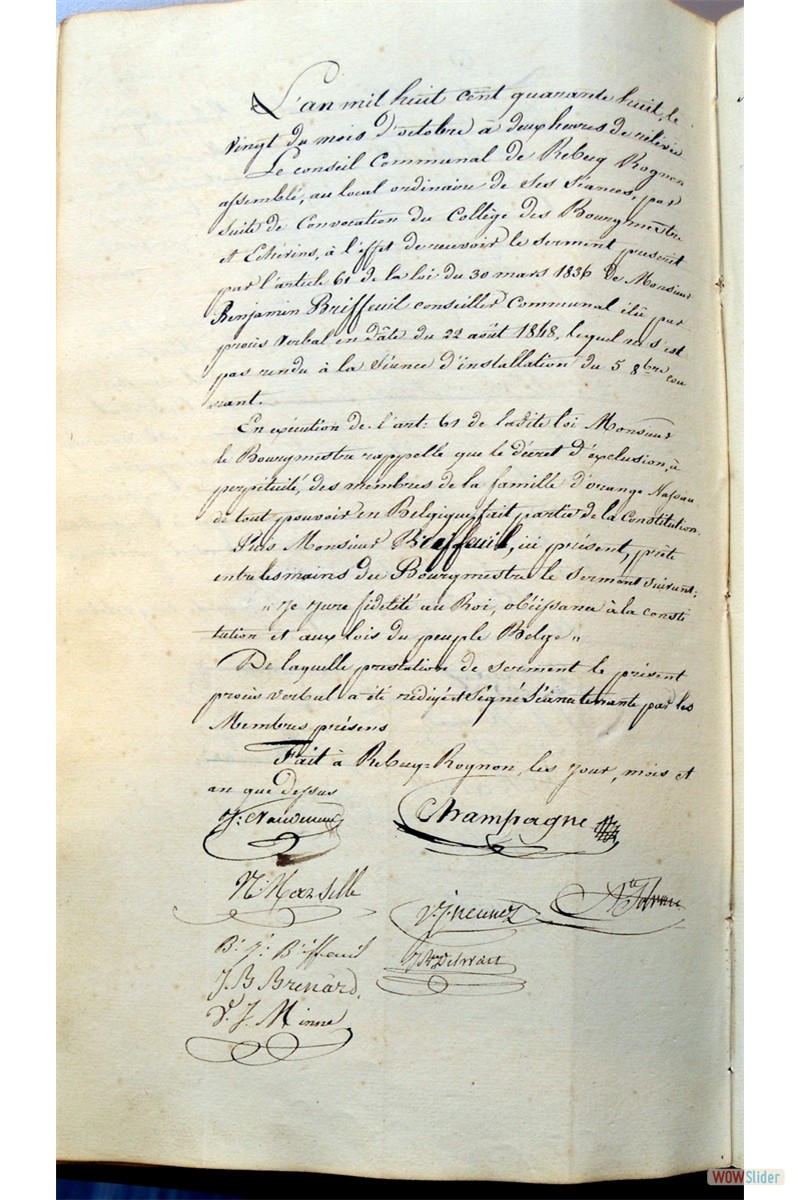 L'an mil huit cent quarante huit, le
vingt du mois d'octobre à deux heures de relévée
Le conseil Communal de Rebecq Rognon
assemblé, au local ordinaire de ses séances, par
suite de Convocation du Collège des Bourgmestre
et Echévins, à l'effet de recevoir le serment prescrit
par l'article 61 de la loi du 30 mars 1836 de Monsieur
Benjamin Briffeuil conseiller Communal élû par
procès verbal en dâte du 22 août 1848, lequel ne s'est
pas rendu à la Séance d'installation du 5 8bre cou
rant.
En exécution de l'art: 61 de ladite loi Monsieur
le Bourgmestre rappellé que le décret d'exclusion, à
perpétuité, des membres de la famille d'orange Nassau
de tout pouvoir en Belgique, fait partie de la Constitution.
Puis Monsieur Briffeuil, ici présent, prête
entre les mains du Bourgmestre le serment suivant:
"Je Jure fidélité au Roi, obéissance à la consti
tution et aux lois du peuple Belge"
De laquelle prestation de serment le présent
procès verbal a été rédigé et Signé Séance tenante par les
Membres présens
Fait à Rebecq=Rognon, les jour, mois et
an que dessus
Champagne
N. Marsille
B. J. Briffeuil
J B Brenard
V. J. Minne
WOWSlider